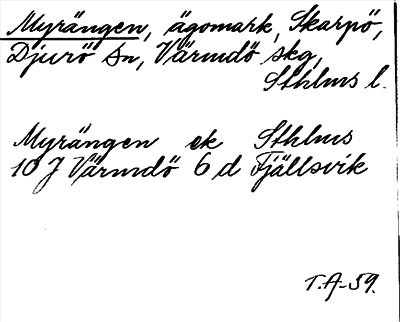 Myrängen, ägomark, Skarpö,
Djurö sn, Värmdö skg,
Sthlms l.
Myrängen ek Sthlms
10 J Värmdö 6 d Fjällsvik
T.A-59.